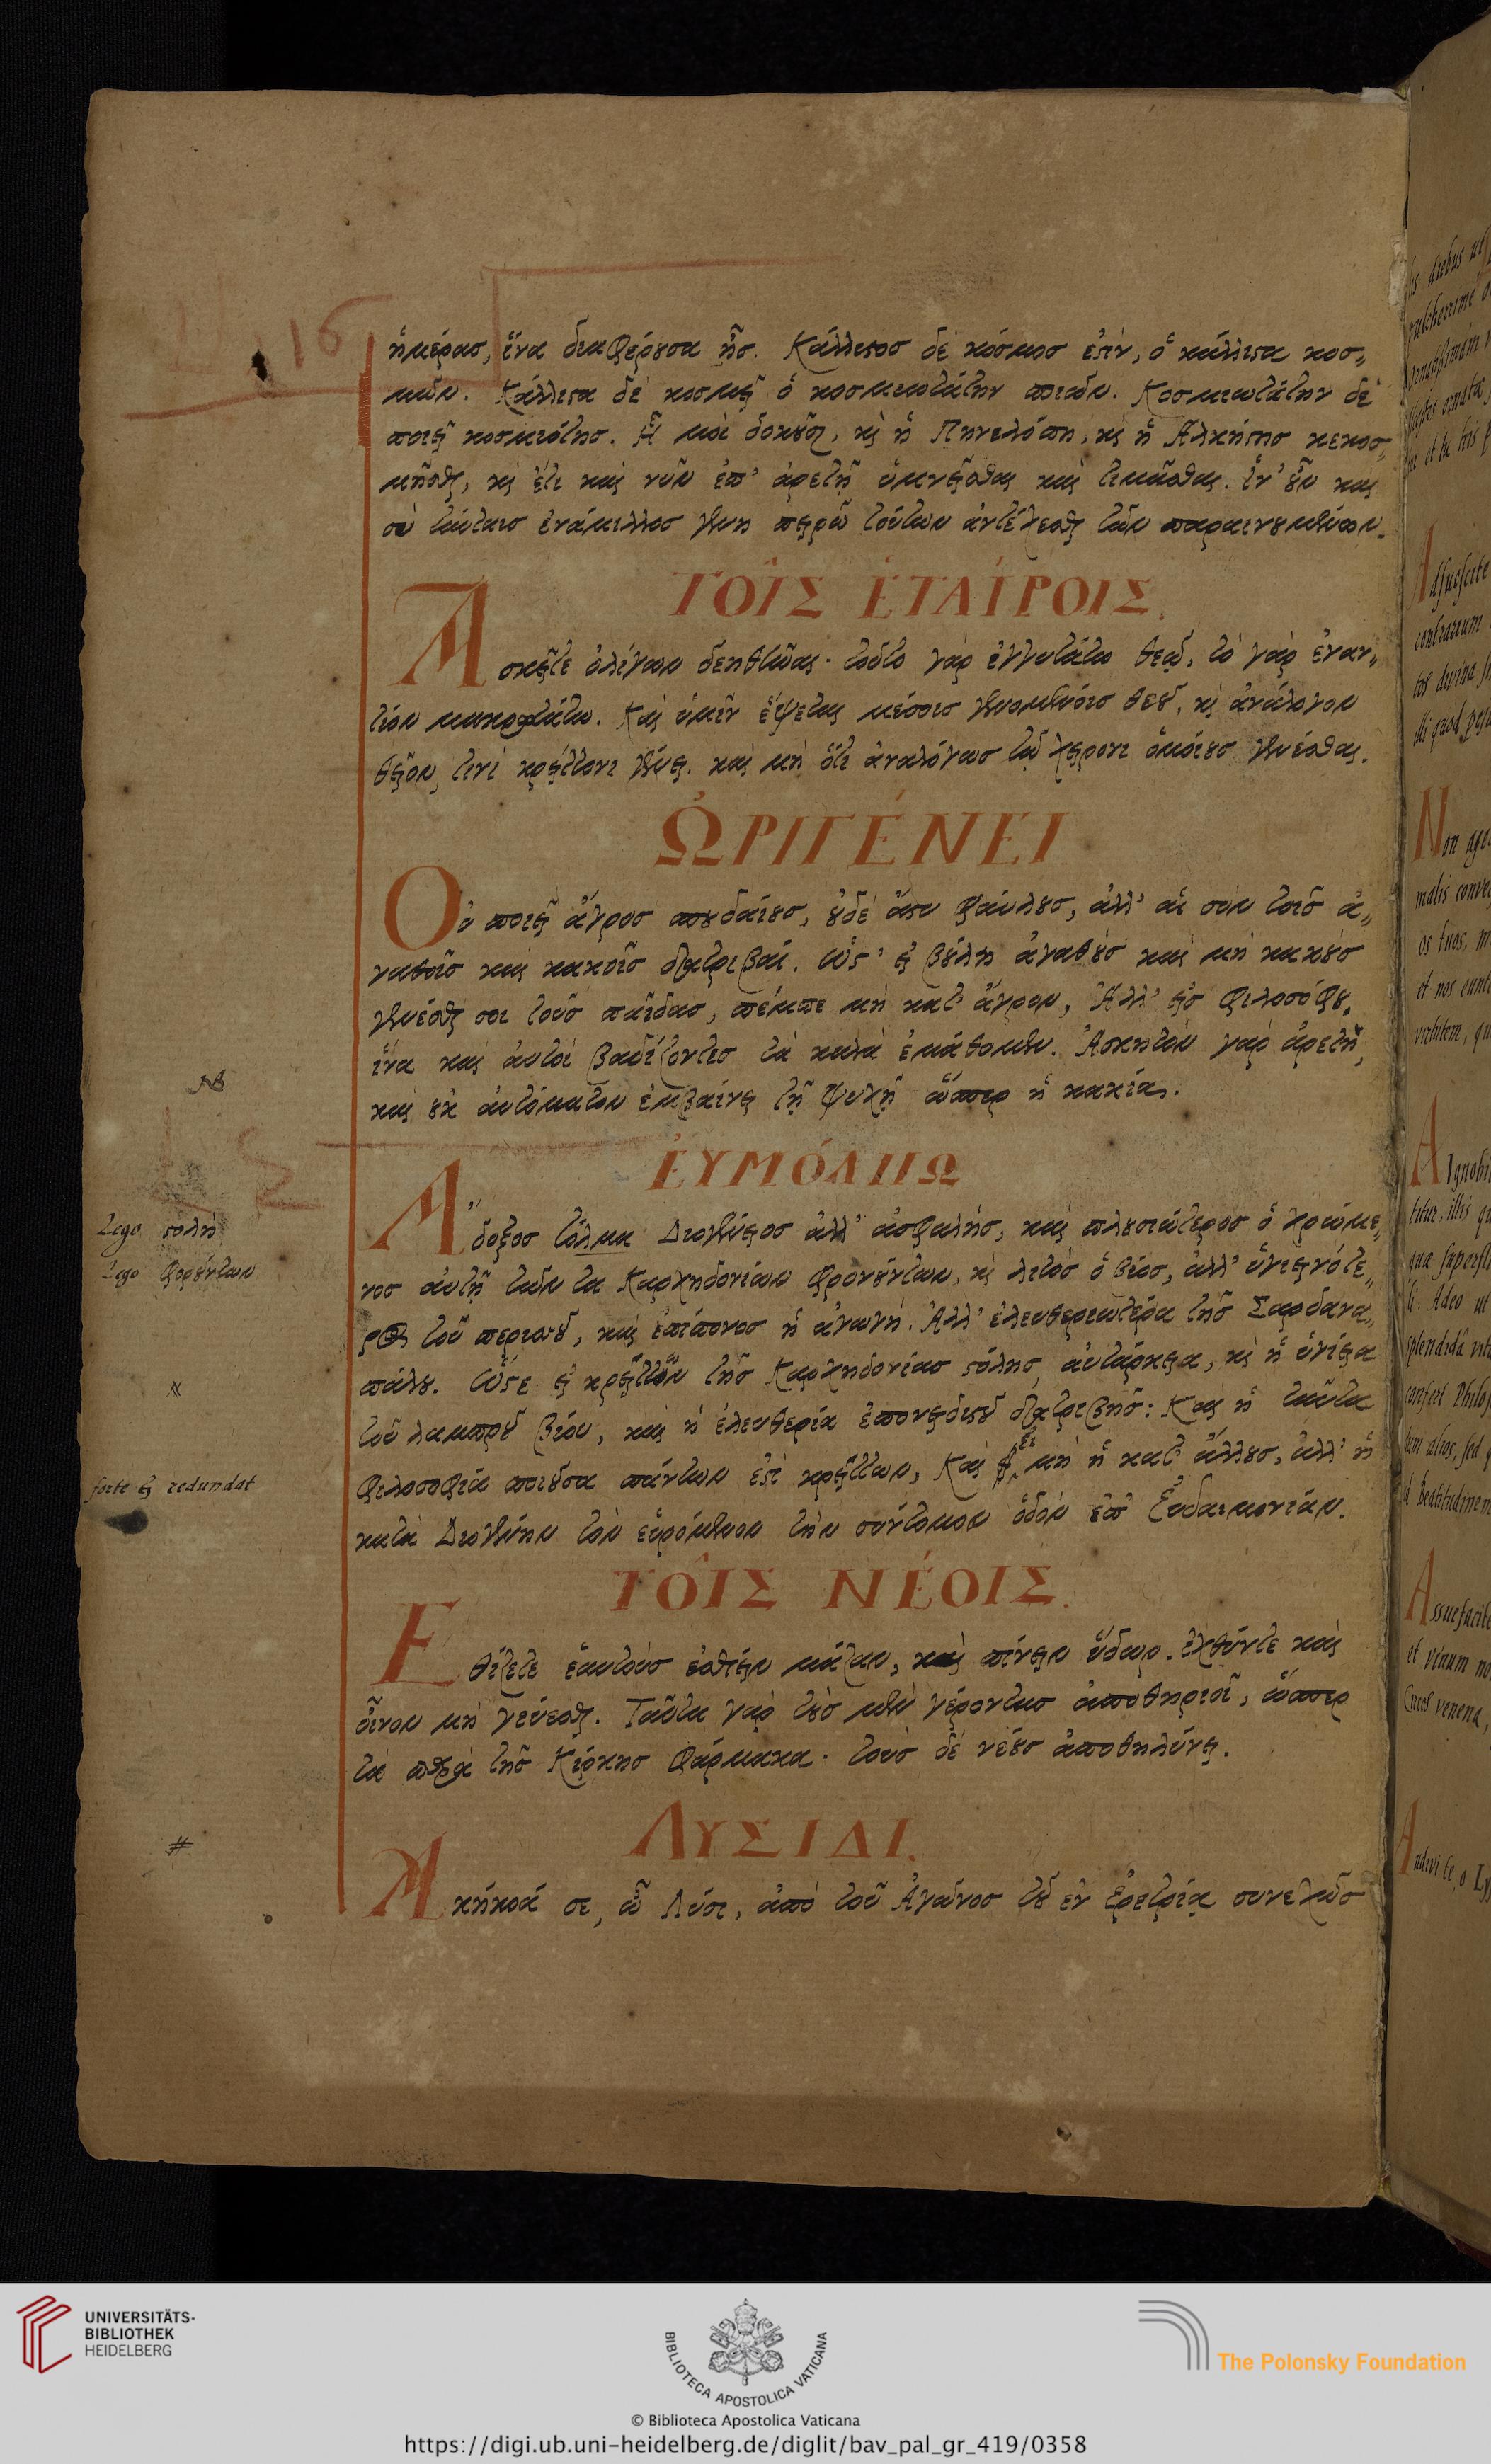 ἡμέρας, ἵνα διαφέρουσα ᾖς. Κάλλιστος δὲ κόσμος ἐστὶν, ὁ κάλλιστα κοσ„
μῶν. Κάλλιστα δὲ κοσμεῖ ὁ κοσμιωτάτην ποιῶν. Κοσμιωτάτην δὲ
ποιεῖ κοσμιότης. ᾟ μοὶ δοκοῦσι, καὶ ἡ Πηνελόπη, καὶ ἡ Ἄλκηστις κεκοσ„
μῆσθαι, καὶ ἔτι καὶ νῦν ἐπ' ἀρετῇ ὑμνεῖσθαι καὶ τιμᾶσθαι. ἵν' οὖν καὶ
σὺ ταύταις ἐνάμιλλος γένῃ πειρῶ τούτων ἀντέχεσθαι τῶν παραινουμένων.
ΤΟΙ͂Σ ἙΤΑΊΡΟΙΣ.
Ασκεῖτε ὀλίγων δεηθῶναι. τοῦτο γὰρ ἐγγυτάτω θεῷ, τὸ γὰρ ἐναν„
τίον μακροτάτω. Καὶ ὑμῖν ἕψεται μέσοις γενομένοις θεοῦ, καὶ ἀνάλογον
θεῖον, τινὶ κρείττονι γένει. καὶ μὴ ὅτι ἀναλόγως τῷ χείρονι ὁμοίους γενέσθαι.
ὨΡΙΓΈΝΕΙ
Οὐ ποιεῖ ἄγρος σπουδαίους, οὐδὲ ἄστυ φαύλους, ἀλλ' αἱ σὺν τοῖς ἀ„
γαθοῖς καὶ κακοῖς διατριβαί. Ὥστ' εἰ βούλῃ ἀγαθοὺς καὶ μὴ κακοὺς
γενέσθαι σοι τοὺς παῖδας, πέμπε μὴ κατ' ἄγρον, Ἀλλ' εἰς φιλοσόφου,
ἵνα καὶ αὐτοὶ βαδίζοντες τὰ καλὰ ἐμάθομεν. Ἀσκητὸν γὰρ ἀρετή,
καὶ οὐκ αὐτόματον ἐμβαίνει τῇ ψυχῇ ὥσπερ ἡ κακία.
NB
ἘΥΜΌΛΠΩ
Lego στολή
Ἄδοξος τόλμα Διογένους ἀλλ' ἀσφαλὴς, καὶ πλουσιώτερος ὁ χρώμε„
Lego φορούντων
νος αὐτῇ τῶν τα Καρχηδονίων φρονούντων, καὶ λιτὸς ὁ βίος, ἀλλ' ὑγιεινότε„
ρος τοῦ περσικοῦ, καὶ ἐπίπονος ἡ ἀγωγή. Ἀλλ' ἐλευθεριωτέρα τῆς Σαρδανα„
πάλου. Ὥστε εἰ κρεῖττων τῆς Καρχηδονίας στόλης, αὐτάρκεια, καὶ ἡ ὑγίεια
τοῦ λαμπροῦ βίου, καὶ ἡ ἐλευθερία ἐπονειδίστου διατριβῆς: Καὶ ἡ ταῦτα
φιλοσοφία ποιοῦσα πάντων ἐστὶ κρείττων, Καὶ εἰ μὴ ἡ κατ' ἄλλους, ἀλλ' ἡ
forte εἰ redundat
κατὰ Διογένην τὸν εὑρόμενον τὴν σύντομον ὁδὸν ἐπ' Εὐδαιμονίαν.
ΤΟΙ͂Σ ΝΈΟΙΣ.
Εθίζετε ἑαυτοὺς ἐσθίειν μάζαν, καὶ πίνειν ὕδωρ. ἰχθύν τε καὶ
οἶνον μὴ γεύεσθαι. Ταῦτα γὰρ τοὺς μὲν γέροντας ἀποθηριοῖ, ὥσπερ
τὰ παρὰ τῆς Κίρκης φάρμακα. τοὺς δὲ νέους ἀποθηλύνει.
ΛΥΣΙΔΙ.
#
Ακήκοά σε, ὦ Λύσι, ἀπὸ τοῦ Ἀγῶνος τοῦ ἐν Ἐρετρίᾳ συνεχῶς
UNIVERSITÄTS-
BIBLIOTHEK
HEIDELBERG
BIBLIOTECA APOSTOLICA VATICANA
The Polonsky Foundation
© Biblioteca Apostolica Vaticana
https://digi.ub.uni-heidelberg.de/diglit/bav_pal_gr_419/0358